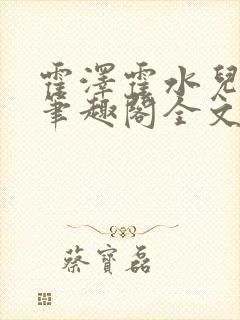 霍澤霍水兒
筆趣閣全文
蔡寶磊